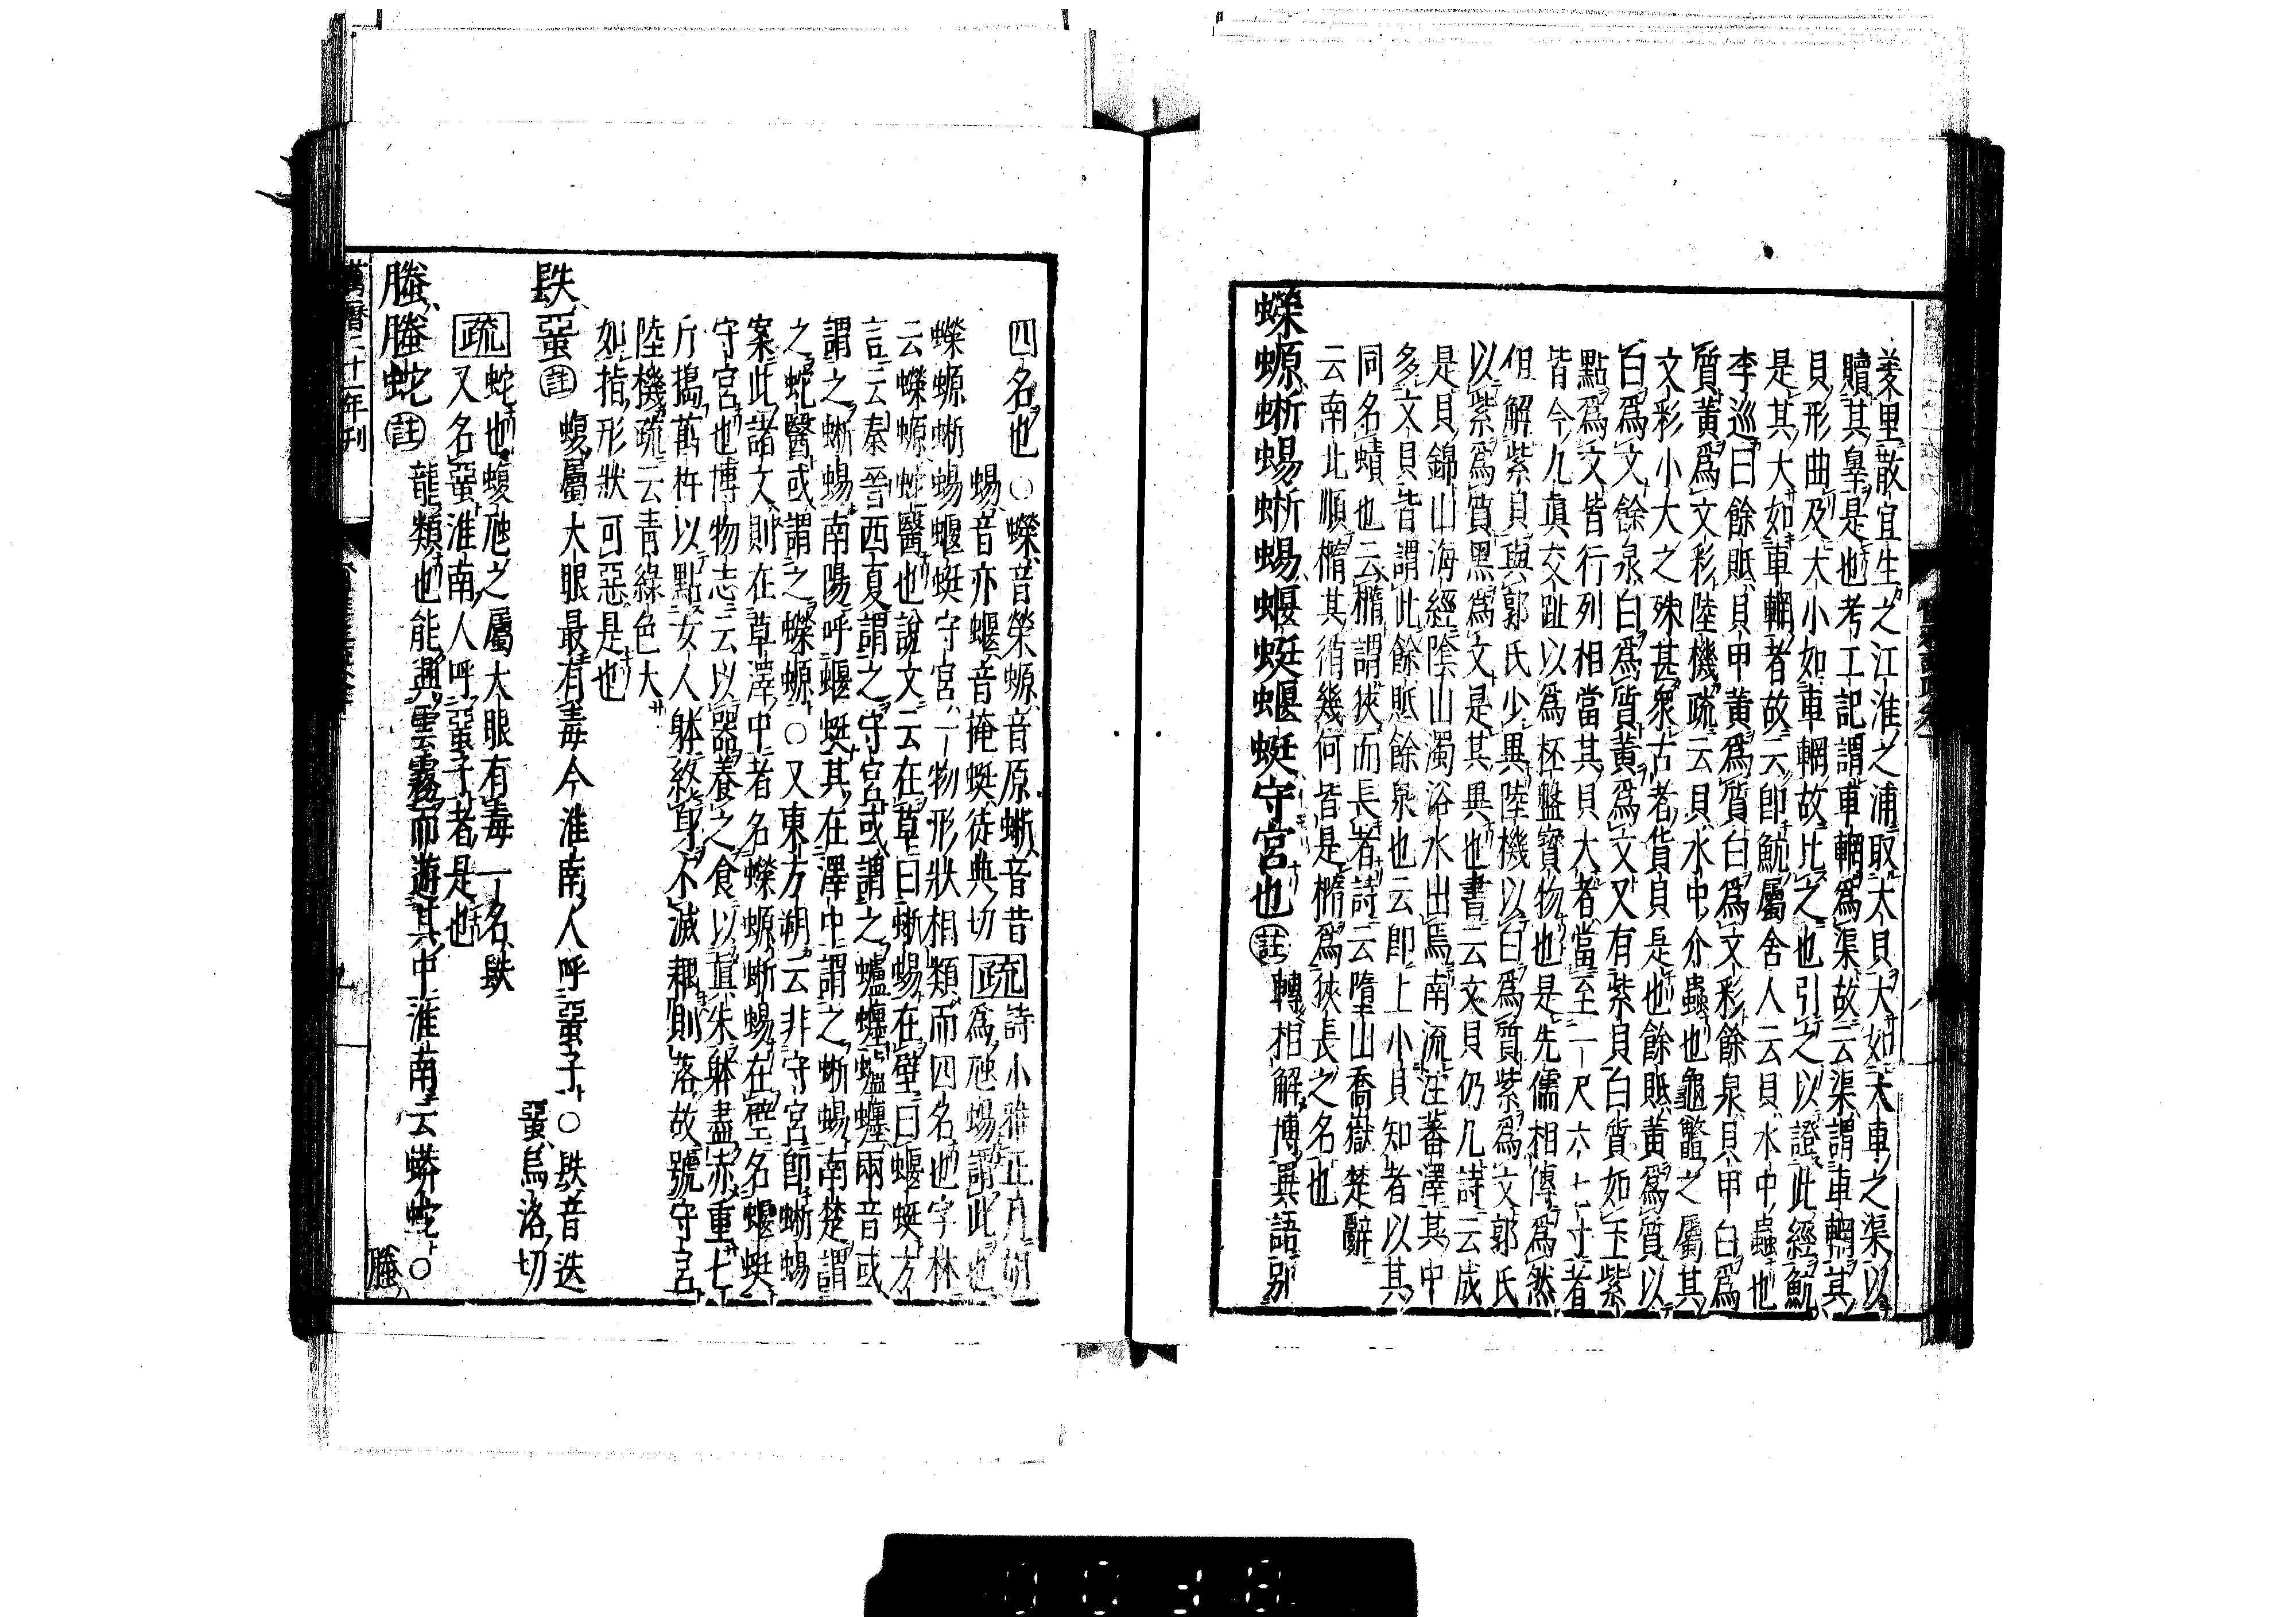 羑里散宜生之江淮之浦取大貝大如大車之渠以
贖其辠是也考工記謂車輞爲渠故云渠謂車輞其
貝形曲及大小如車輞故比之也引之以證此經魧
是其大如車輞者故云卽魧屬舍人云貝水中蟲也
李巡曰餘貾貝甲黃爲質白爲文彩餘泉貝甲白爲
質黃爲文彩陸機疏云貝水中介蟲也龜鼈之屬其
文彩小大之殊甚衆古者貨貝是也餘貾黃爲質以
白爲文餘泉白爲質黃爲文又有紫貝白質如玉紫
點爲文皆行列相當其貝大者當至一尺六七寸者
皆今九眞交趾以爲杯盤寶物也是先儒相傳爲然
但解紫貝與郭氏少異陸機以白爲質紫爲文郭氏
以紫爲質黑爲文是其異也書云文貝仍几詩云成
是貝錦山海經陰山濁浴水出焉南流注蕃澤其中
多文貝皆謂此餘貾餘泉也云卽上小貝知者以其
同名蟦也云橢謂狹而長者詩云墮山喬嶽楚辭
云南北順橢其循幾何皆是橢爲狹長之名也
蠑螈蜥蜴蜥蜴蝘蜓蝘蜓守宮也註轉相解博異語別
四名也○蠑音榮螈音原蜥音昔
蜴音亦蝘音掩蜓徒典切
疏詩小雅正月胡
爲虺蜴謂此也
蠑螈蜥蜴蝘蜓守宮一物形狀相類而四名也字林
云蠑螈蛇醫也說文云在草曰蜥蜴在壁曰蝘蜓方
言云秦晉西夏謂之守宮或謂之蠦𧔧蠦𧔧兩音或
謂之蜥蜴南陽呼蝘蜓其在澤中謂之蜥蜴南楚謂
之蛇醫或謂之蠑螈○又東方朔云非守宮卽蜥蜴
案此諸文則在草澤中者名蠑螈蜥蜴在壁名蝘蜓
守宮也博物志云以器養之食以眞朱躰盡赤重七
斤擣萬杵以點女人躰終身不滅耦則落故號守宮
陸機疏云青綠色大
如指形狀可惡是也
镻蝁註蝮屬大眼最有毒今淮南人呼蝁子○镻音迭
蝁烏洛切
疏蛇也蝮虺之屬大眼有毒一名镻
又名蝁淮南人呼蝁子者是也
螣螣蛇註龍類也能興雲霧而遊其中淮南云蟒蛇○
螣
萬曆二十一年刊